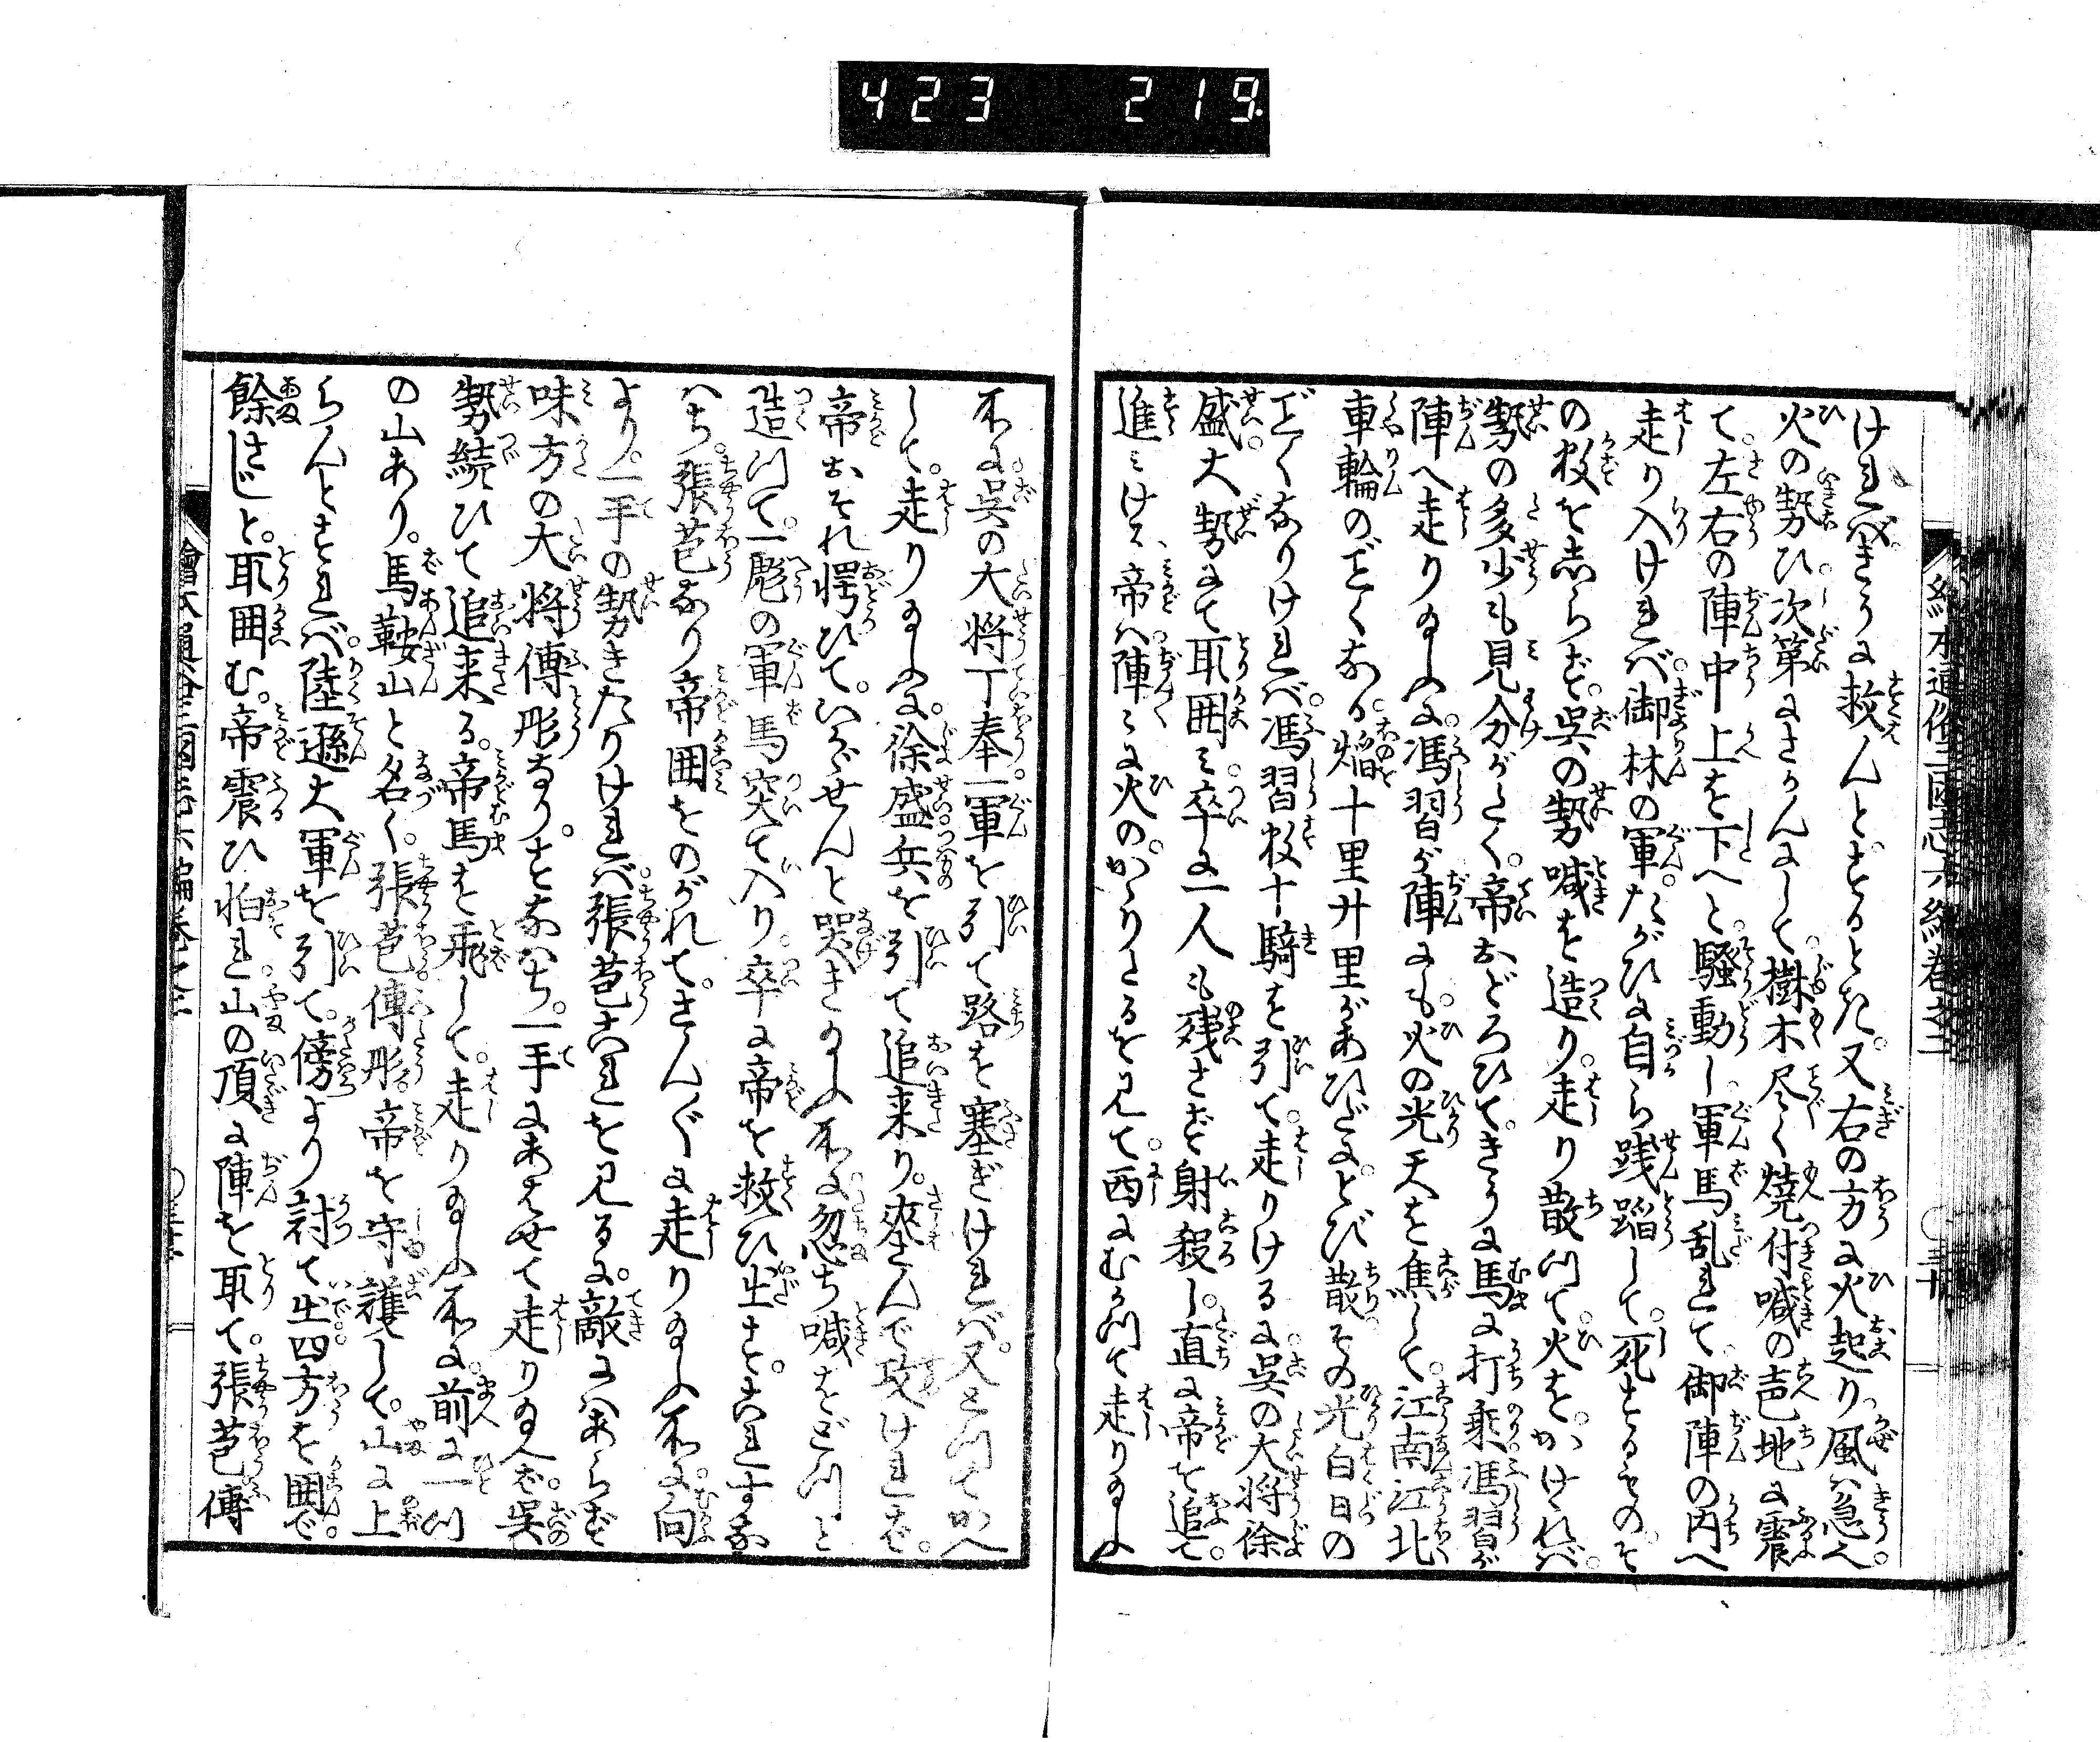 423 219
ければきうに救んとするとき。又右の方に火起り風は急へ。
火の勢ひ次第にさかんにして樹木尽く焼付喊の声地に震
て。左右の陣中上を下へと。騒動し軍馬乱れて御陣の内へ
走り入ければ御林の軍。たがひに自ら践蹈して。死するもの。そ
の数をしらず。呉の勢喊を造り。走り散つて火を。かけゝれば。
勢の多少も見分がたく。帝おどろひて。きうに馬に打乗馮習が
陣へ走り玉ふに馮習が陣にも火の光天を焦して。江南江北
車輪のごとくなる焔十里廿里があひだに。とび散その光白日の
ごとくなりければ。馮習数十騎を引て。走りけるに呉の大将徐
盛大勢にて取囲ミ。卒に一人も残さず射殺し。直に帝を追て。
進ミける、帝ハ陣ミに火の。かゝりたるを見て。西にむかつて走り玉ふ
所に呉の大将丁奉一軍を引て路を塞ぎければ。又とつてかへ
して。走り玉ふに。徐盛兵を引て追来り。夾さんで攻ければ。
帝おそれ愕ひて。いかゞせんと哭き玉ふ所に忽ち喊をどつと
造つて。一彪の軍馬突て入り。卒に帝を救ひ出す。これすな
ハち。張苞なり帝囲をのがれて。さんぐに走り玉ふ所に。向
より。一手の勢きたりければ。張苞これを見るに。敵にハあらず
味方の大将傅彤なり。すなハち。一手にあはせて走り玉へば。呉の
勢続ひて追来る。帝馬を飛して。走り玉ふ所に。前に一つ
の山あり。馬鞍山と名く。張苞傅彤。帝を守護して。山に上
らんとすれば。陸遜大軍を引て。傍より討て出四方を囲で
餘さじと。取囲む。帝震ひ怕れ。山の頂に陣を取て。張苞傅